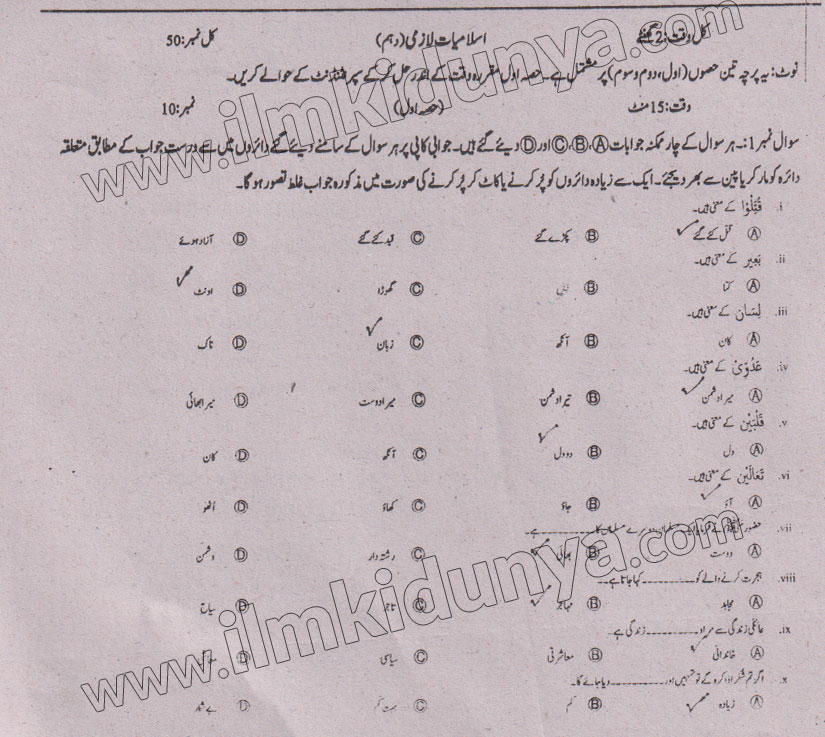 کل وقت: 2 گھنٹے اسلامیات لازمی (دہم) کل نمبر: 50
نوٹ: یہ پرچہ تین حصوں (اول، دوم و سوم) پر مشتمل ہے۔ حصہ اول مقررہ وقت کے اندر حل کر کے سپرنٹنڈنٹ کے حوالے کریں۔
وقت: 15 منٹ (حصہ اول) نمبر: 10
سوال نمبر 1:۔ ہر سوال کے چار ممکنہ جوابات A، B، C اور D دیئے گئے ہیں۔ جوابی کاپی پر ہر سوال کے سامنے دیئے گئے دائروں میں سے درست جواب کے مطابق متعلقہ
دائرہ کو مارکر یا پین سے بھر دیجئے۔ ایک سے زیادہ دائروں کو پُر کرنے یا کاٹ کر پُر کرنے کی صورت میں مذکورہ جواب غلط تصور ہو گا۔
i. قُتِلُوْا کے معنی ہیں۔
A قتل کئے گئے B پکڑے گئے C قید کئے گئے D آزاد ہوئے
ii. بَعِیر کے معنی ہیں۔
A کتا B C گھوڑا D اونٹ
iii. لِسَان کے معنی ہیں۔
A کان B آنکھ C زبان D ناک
iv. عَدُوِّیْ کے معنی ہیں۔
A میرا دشمن B تیرا دشمن C میرا دوست D میرا بھائی
v. قَلْبَیْنِ کے معنی ہیں۔
A دل B دو دل C آنکھ D کان
vi. تَعَالَیْنَ کے معنی ہیں۔
A آؤ B جاؤ C کھاؤ D اُٹھو
vii. حضور نے فرمایا ایک مسلمان دوسرے مسلمان کا ---------- ہے۔
A دوست B بھائی C رشتہ دار D دشمن
viii. ہجرت کرنے والے کو ---------- کہا جاتا ہے۔
A مجاہد B مہاجر C تاجر D سیاح
ix. عائلی زندگی سے مراد ---------- زندگی ہے۔
A خاندانی B معاشرتی C سیاسی D
x. اگر تم شکر ادا کرو گے تو تمہیں اور ---------- دیا جائے گا۔
A زیادہ B کم C بہت کم D بے شمار
www.ilmkidunya.com
www.ilmkidunya.com